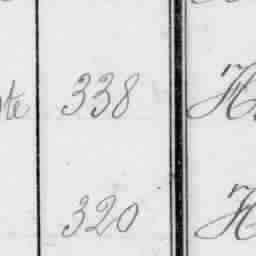 te 338 H
320 H